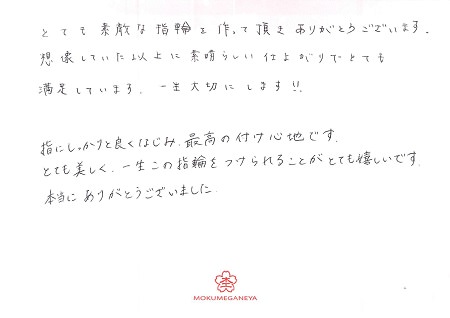 とても素敵な指輪を作って頂きありがとうございます。
想像していた以上に素晴らしい仕上がりでとても
満足しています。一生大切にします!!
指にしっかりと良くなじみ、最高の付け心地です。
とても美しく、一生この指輪をつけられることがとても嬉しいです。
本当にありがとうございました。
MOKUMEGANEYA